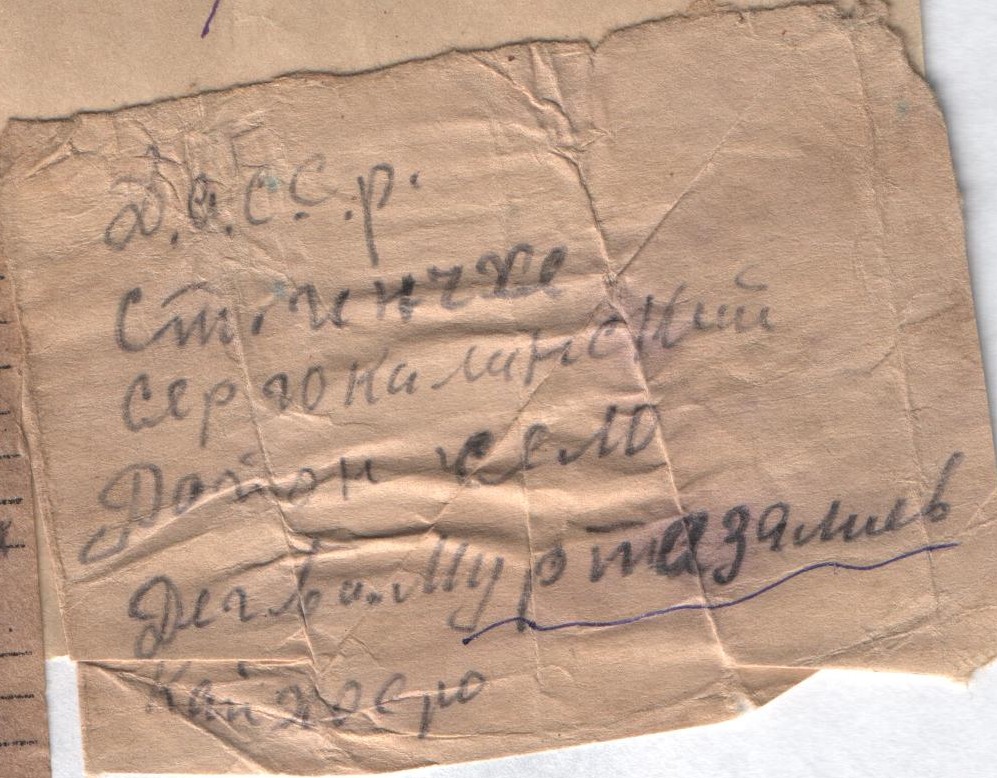 Д.а.С.С.р.
Ст. инчхе
Сергокалинский
Район село
Дегва. Муртазалиев
Кайхосро